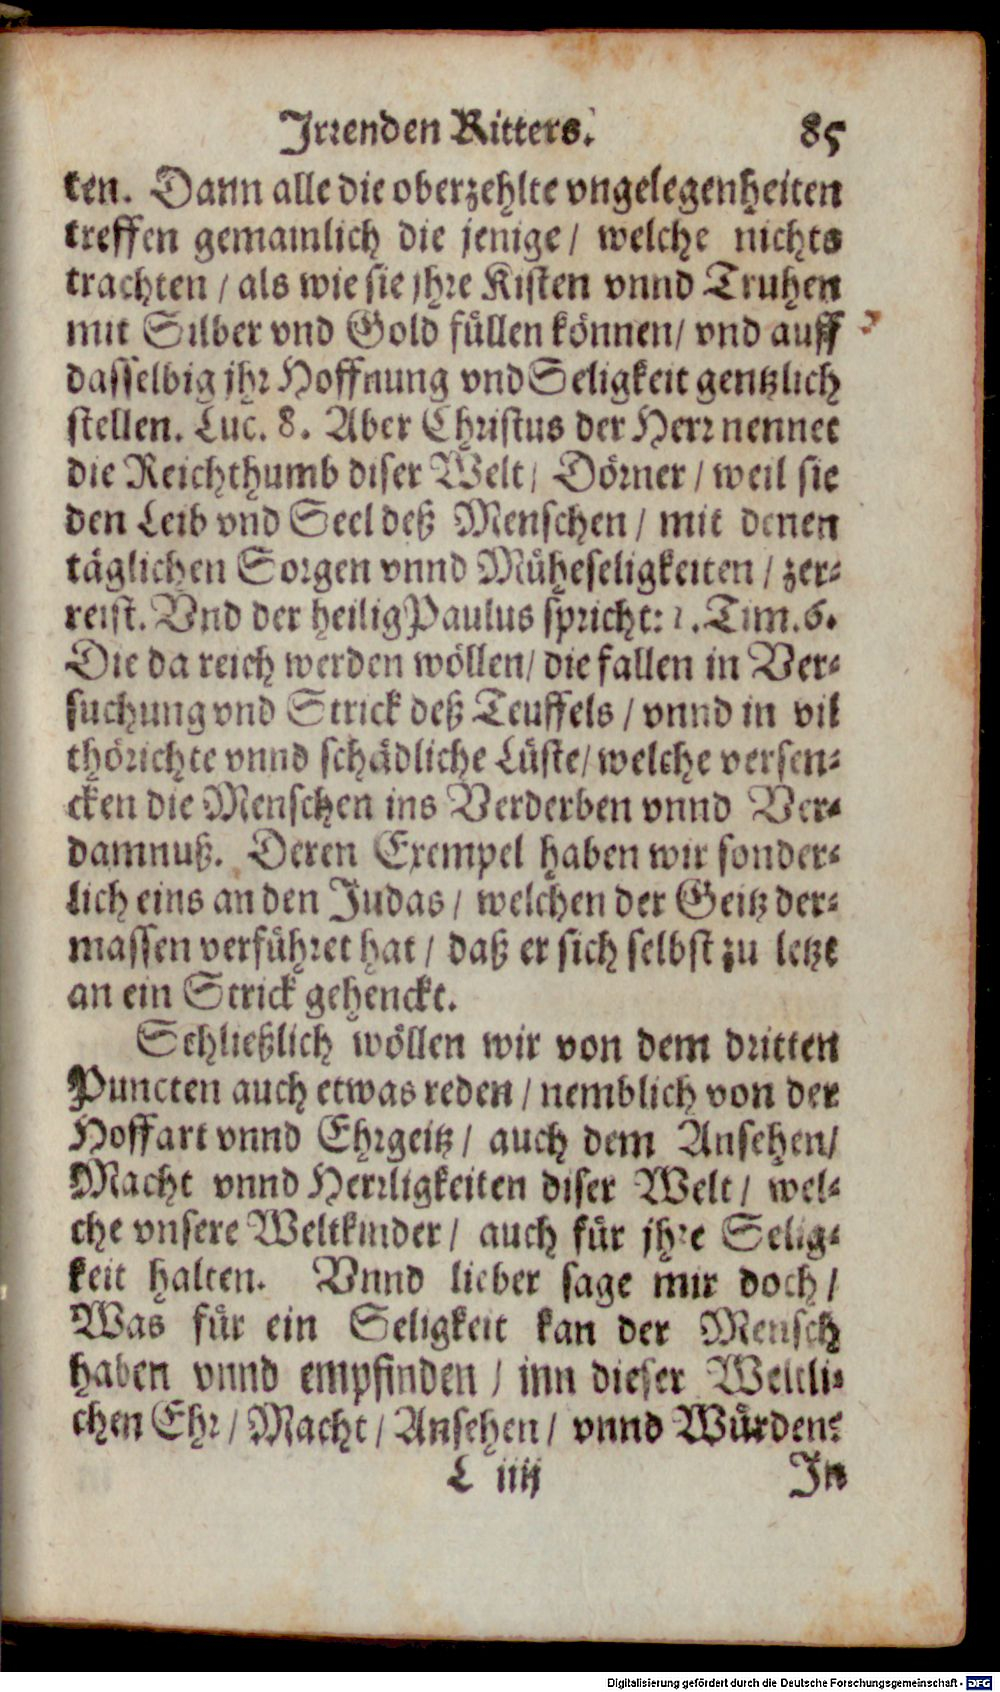 Irrenden Ritters. 85
ten. Dann alle die oberzehlte vngelegenheiten
treffen gemainlich die jenige / welche nichts
trachten / als wie sie jhre Kisten vnnd Truhen
mit Silber vnd Gold füllen können / vnd auff
dasselbig jhr Hoffnung vnd Seligkeit gentzlich
stellen. Luc. 8. Aber Christus der Herr nennet
die Reichthumb diser Welt / Dörner / weil sie
den Leib vnd Seel deß Menschen / mit denen
täglichen Sorgen vnnd Müheseligkeiten / zer-
reist. Vnd der heilig Paulus spricht: 1. Tim. 6.
Die da reich werden wöllen / die fallen in Ver-
suchung vnd Strick deß Teuffels / vnnd in vil
thörichte vnnd schädliche Lüste / welche versen-
cken die Menschen ins Verderben vnnd Ver-
damnuß. Deren Exempel haben wir sonder-
lich eins an den Judas / welchen der Geitz der-
massen verführet hat / daß er sich selbst zu letzt
an ein Strick gehenckt.
Schließlich wöllen wir von dem dritten
Puncten auch etwas reden / nemblich von der
Hoffart vnnd Ehrgeitz / auch dem Ansehen /
Macht vnnd Herrligkeiten diser Welt / wel-
che vnsere Weltkinder / auch für jhre Selig-
keit halten. Vnnd lieber sage mir doch /
Was für ein Seligkeit kan der Mensch
haben vnnd empfinden / inn dieser Weltli-
chen Ehr / Macht / Ansehen / vnnd Würden?
L iiij In
Digitalisierung gefördert durch die Deutsche Forschungsgemeinschaft - DFG